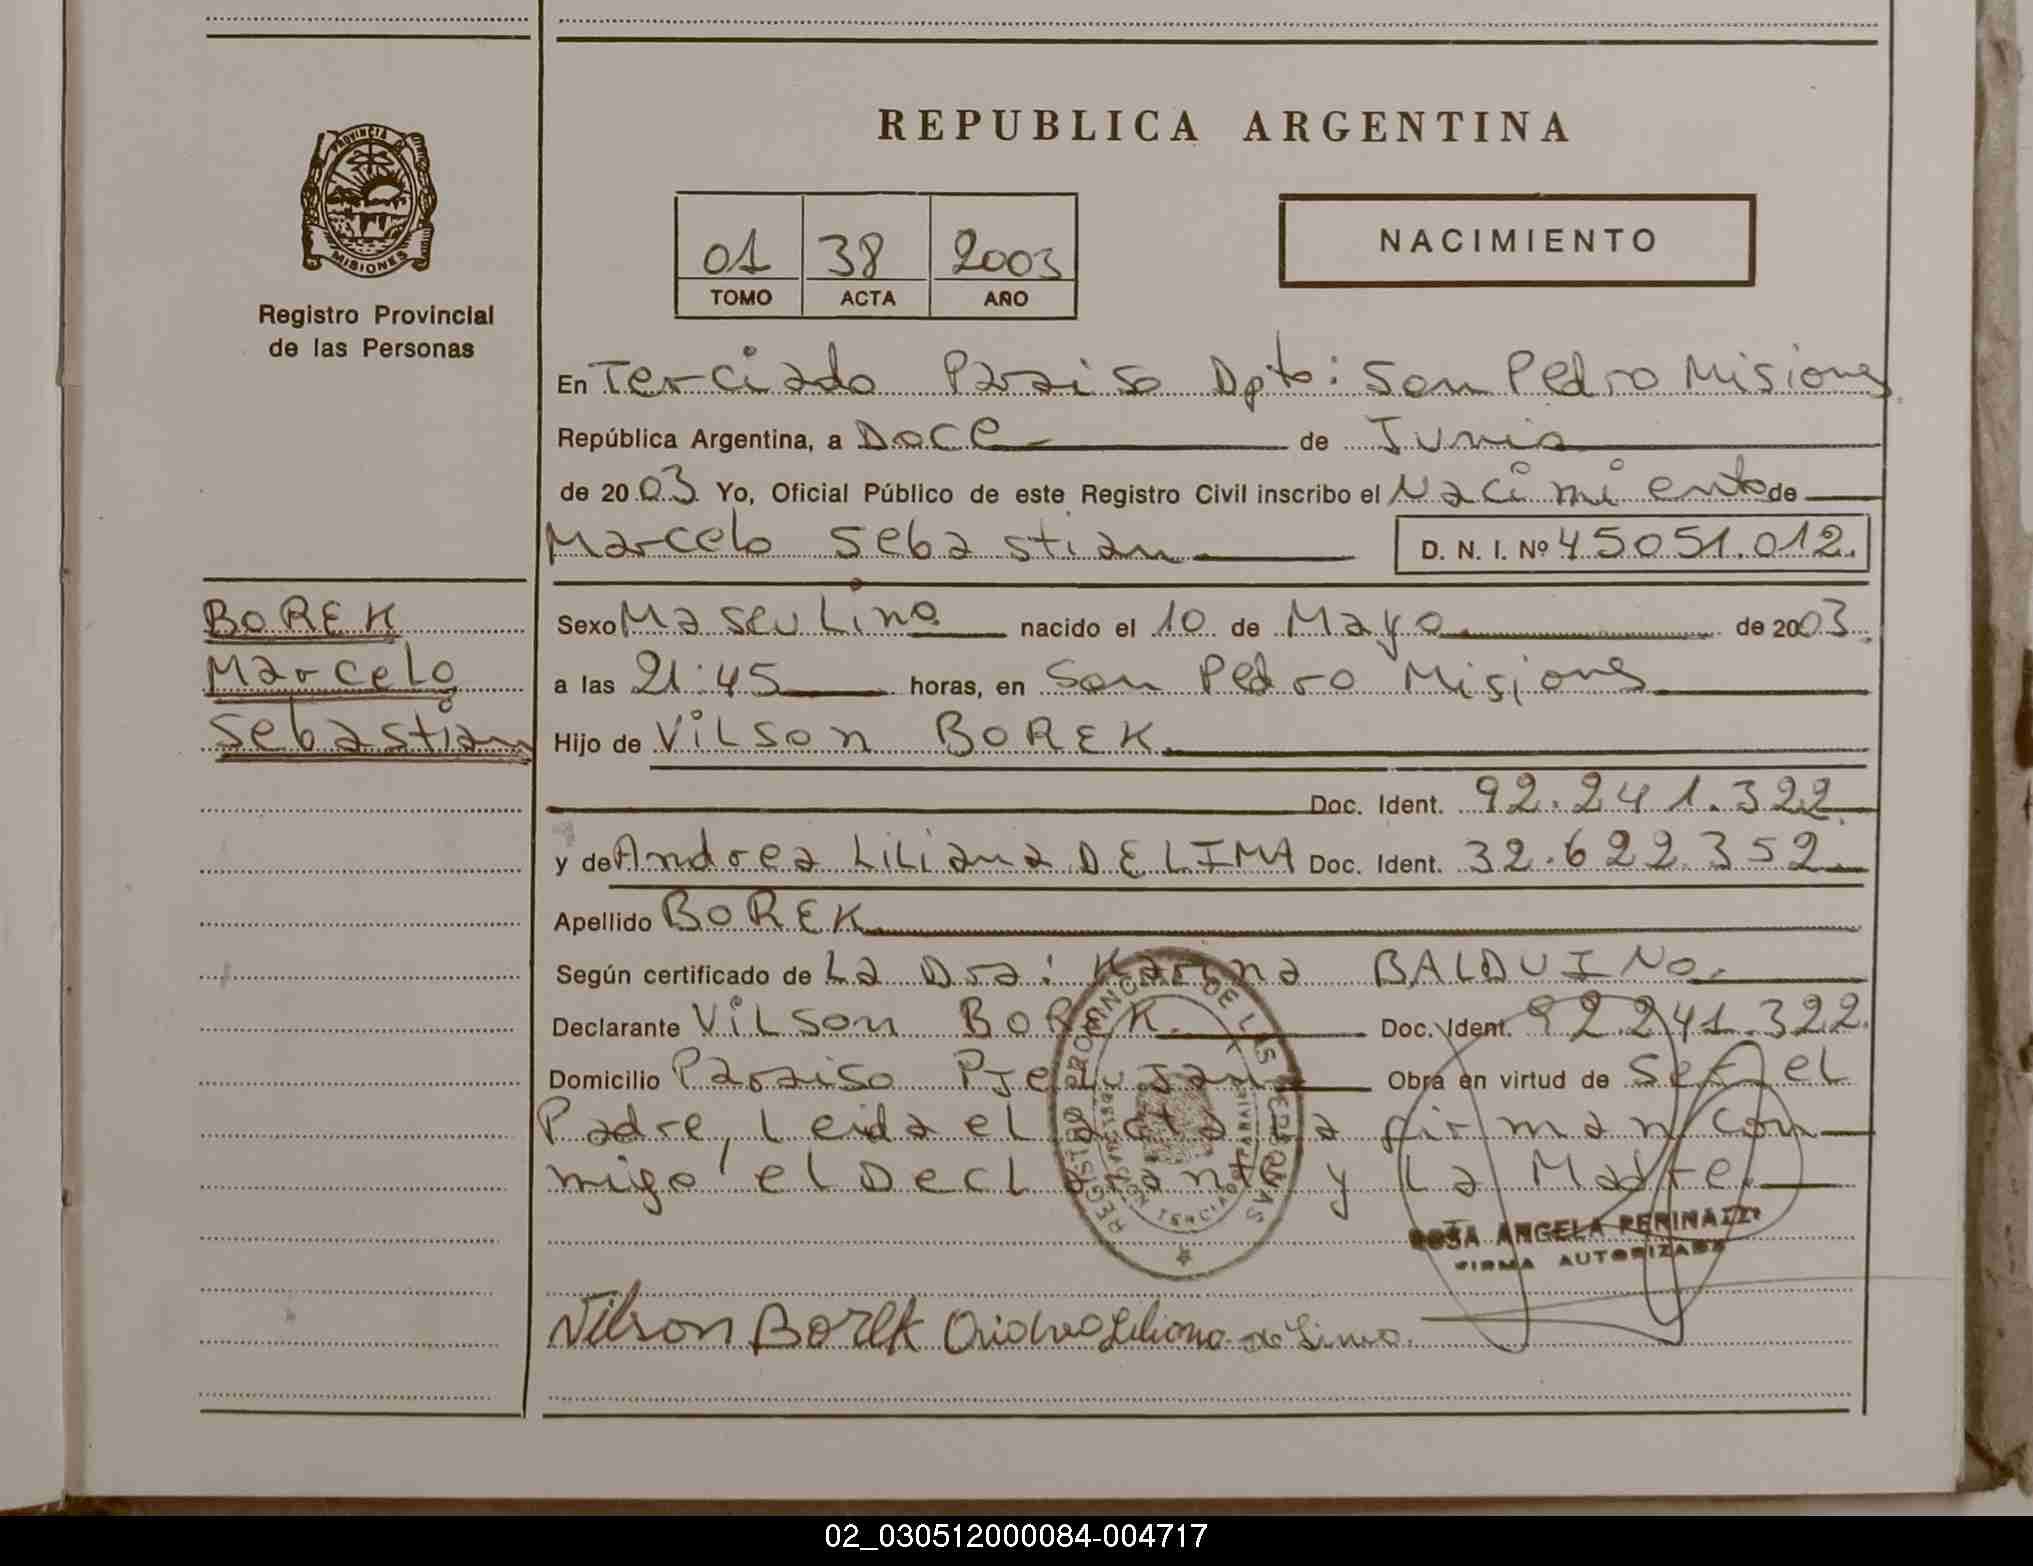 PROVINCIA DE
MISIONES
Registro Provincial
de las Personas
REPUBLICA ARGENTINA
01 38 2003
TOMO ACTA AÑO
NACIMIENTO
En Terciado Paraiso Dpto: San Pedro Misiones
República Argentina, a Doce de Junio
de 2003 Yo, Oficial Público de este Registro Civil inscribo el Nacimiento de
Marcelo Sebastian D. N. I. Nº 45051.012.
BOREK
Marcelo
Sebastian
Sexo Masculino nacido el 10 de Mayo de 2003
a las 21:45 horas, en San Pedro Misiones
Hijo de Vilson BOREK
Doc. Ident. 92.241.322
y de Andrea Liliana DE LIMA Doc. Ident. 32.622352
Apellido BOREK
Según certificado de La Dra: Karina BALDUINO.
Declarante Vilson BOREK. Doc. Ident. 92241.322.
Domicilio Paraiso Pje Lujan Obra en virtud de ser el
Padre, Leida el acta la firman con
migo el Declarante y La Madre.
REGISTRO PROVINCIAL DE LAS PERSONAS
ROSA ANGELA PERINAZZO
FIRMA AUTORIZADA
Vilson Borek Andrea Liliana de Lima.
02_030512000084-004717